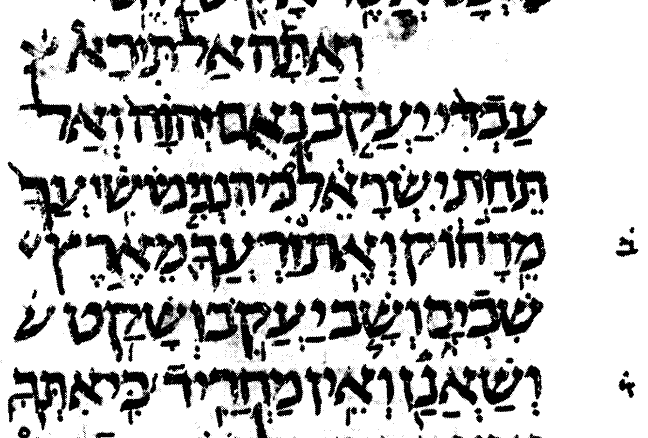 וְאַתָּה אַל תִּירָא
עַבְדִּי יַעֲקֹב נְאֻם יְהוָה וְאַל
תֵּחַת יִשְׂרָאֵל כִּי הִנְנִי מוֹשִׁיעֲךָ
מֵרָחוֹק וְאֶת זַרְעֲךָ מֵאֶרֶץ
שִׁבְיָם וְשָׁב יַעֲקֹב וְשָׁקַט
וְשַׁאֲנַן וְאֵין מַחֲרִיד כִּי אִתְּךָ